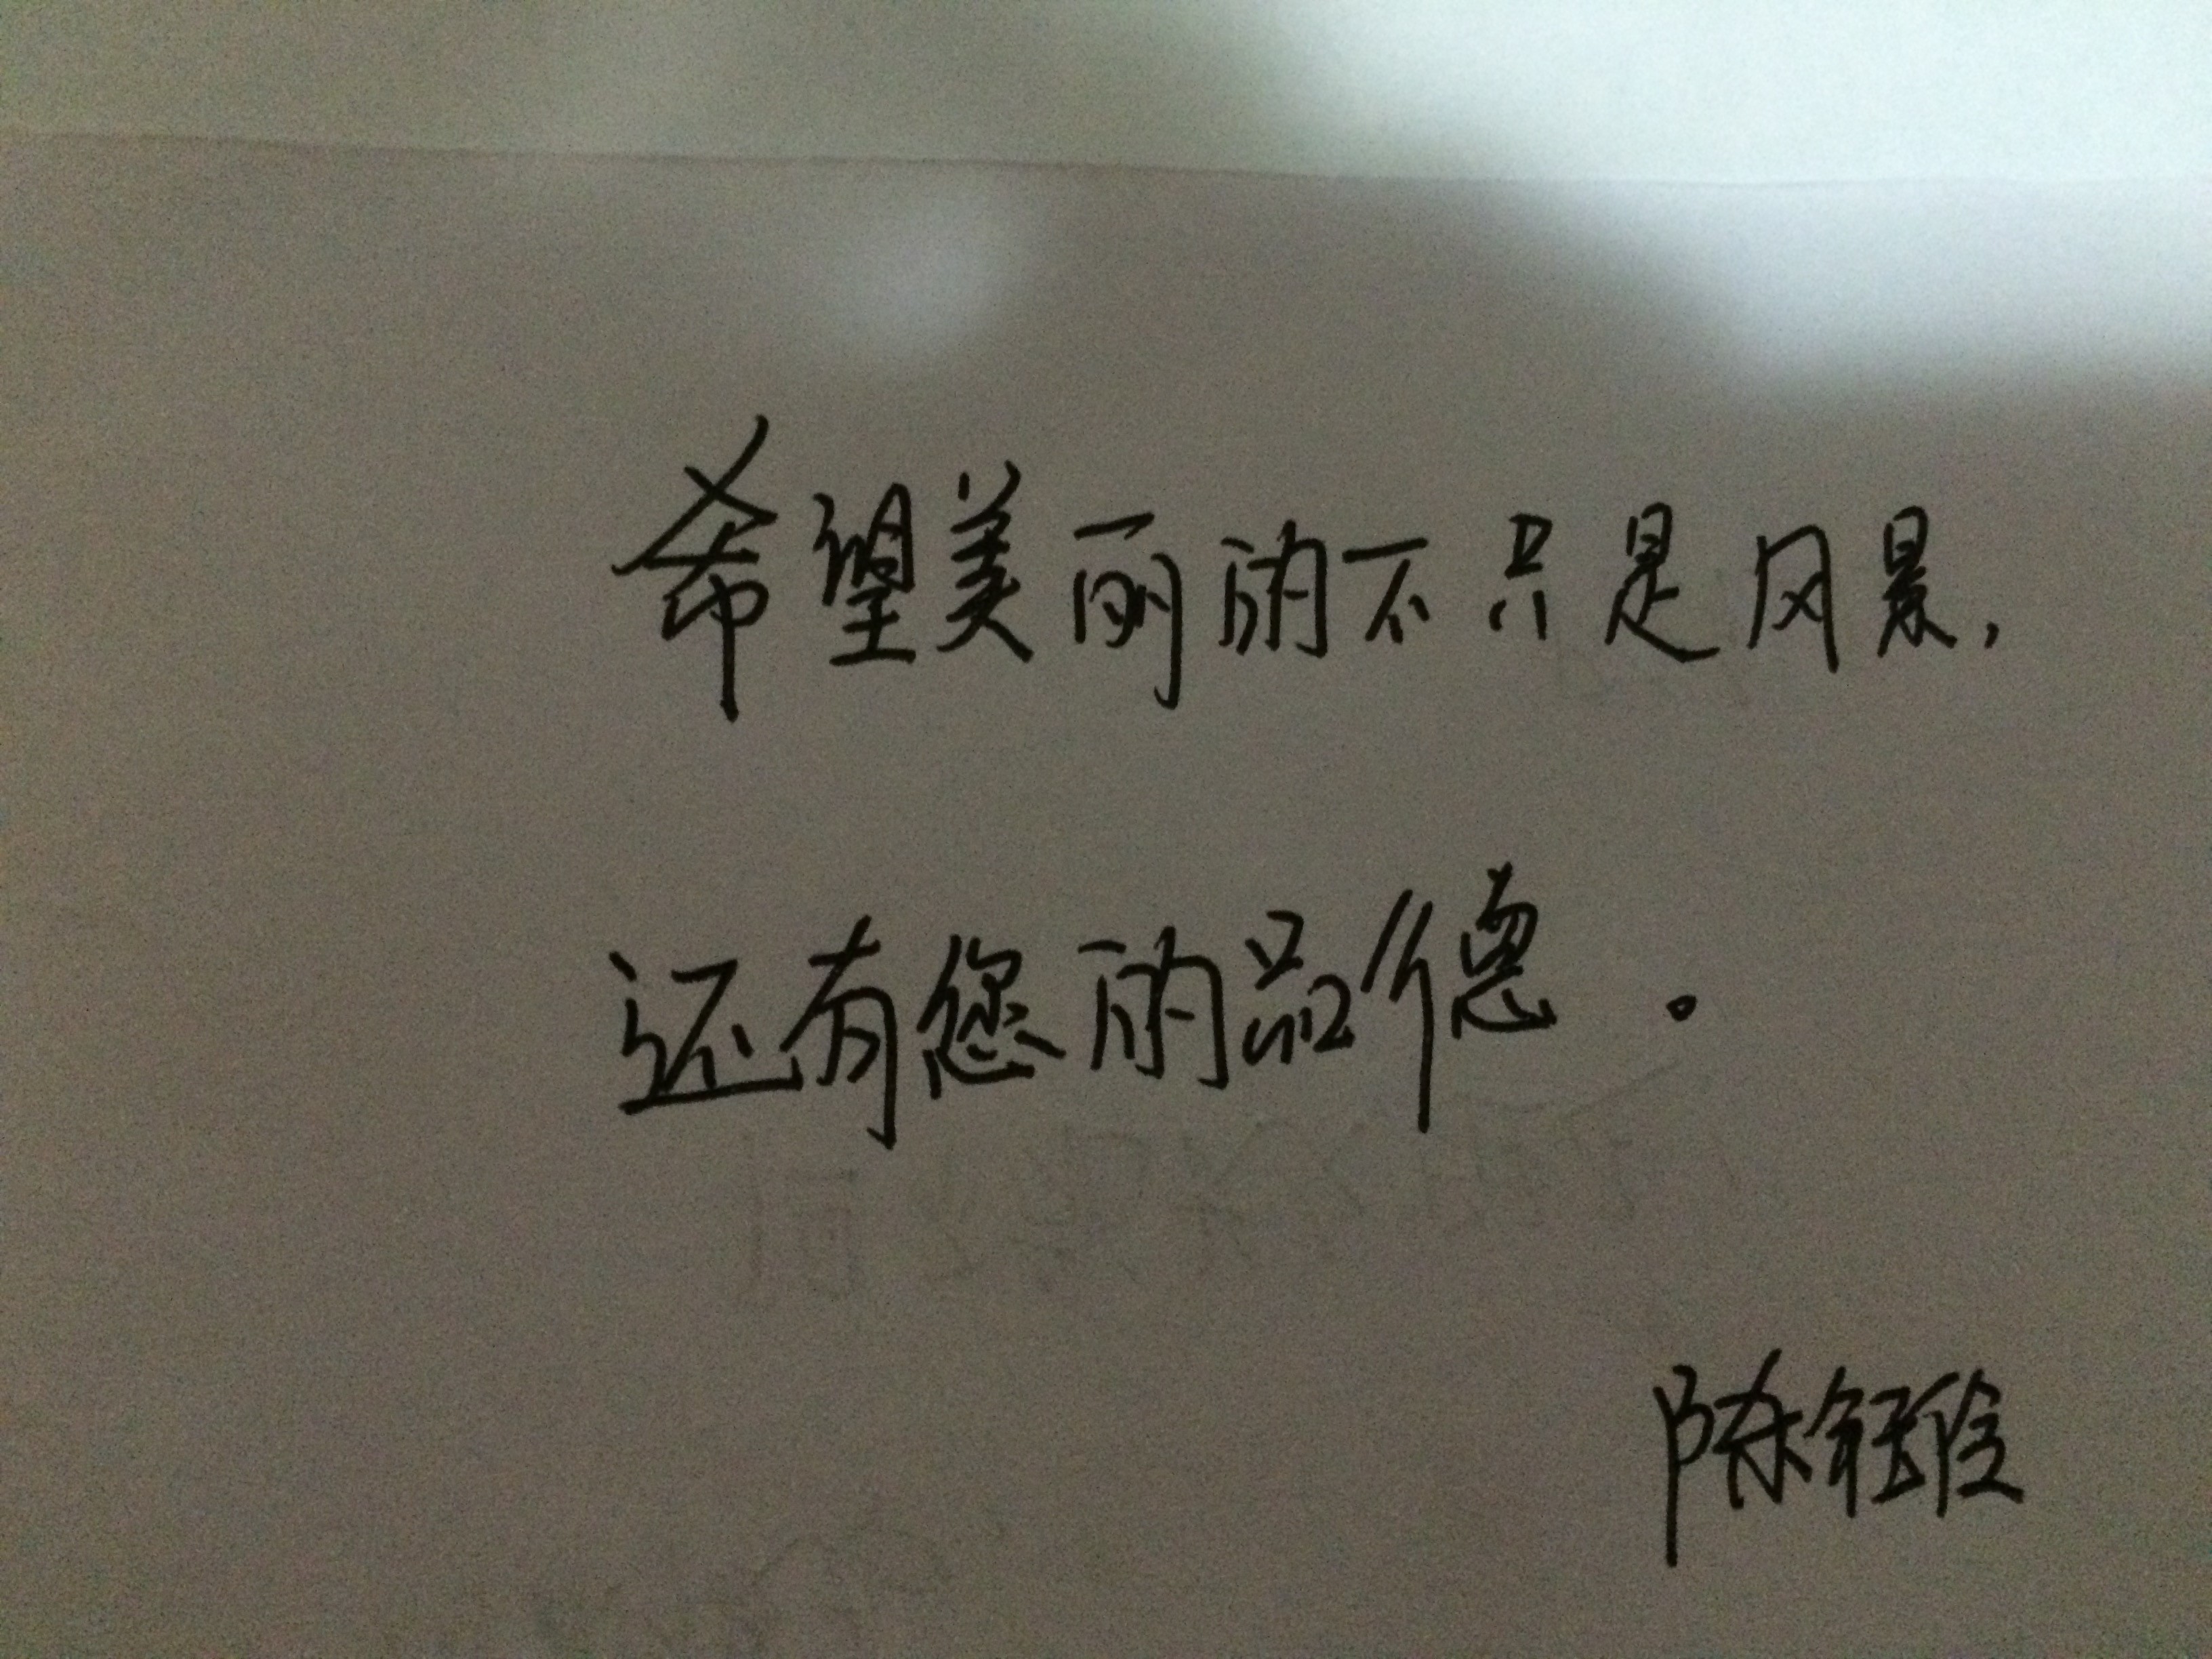 希望美丽的不只是风景,
还有您的品德。
陈